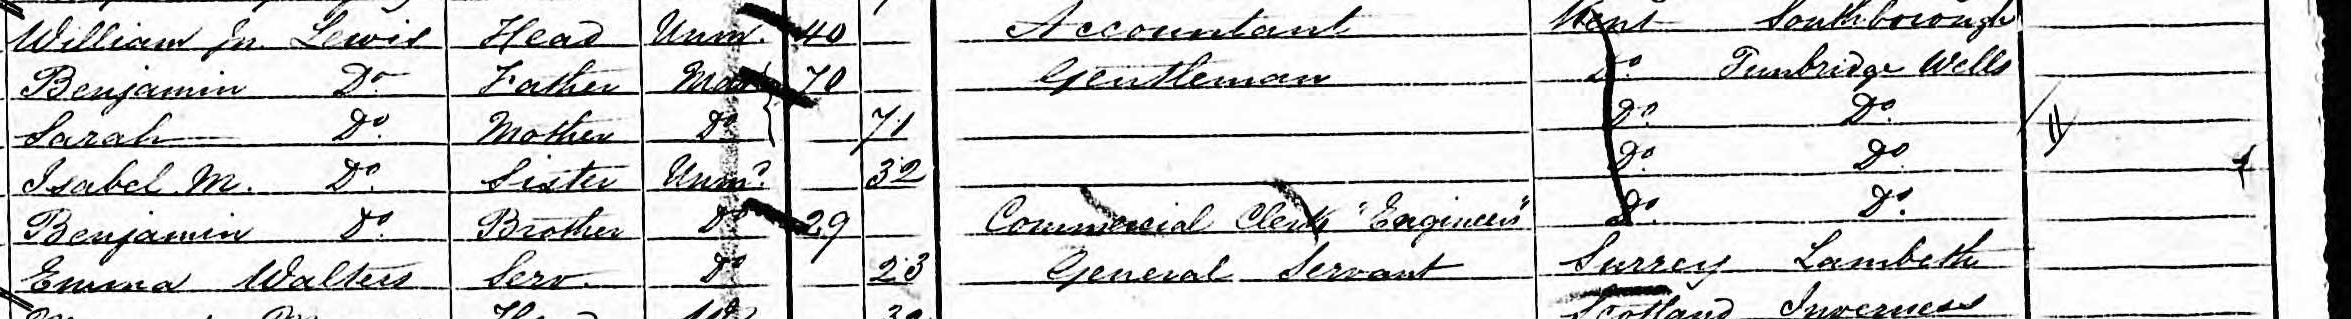 William Jn. Lewis Head Unm. 40 Accountant Kent Southborough
Benjamin Do Father Mar 70 Gentleman Do. Tunbridge Wells
Sarah Do. Mother Do 71 Do. Do.
Isabel M. Do. Sister Unm. 32 Do. Do.
Benjamin Do. Brother Do 29 Commercial Clerk "Engineers" Do. Do.
Emma Walters Serv. Do 23 General Servant Surrey Lambeth
Head Scotland Inverness